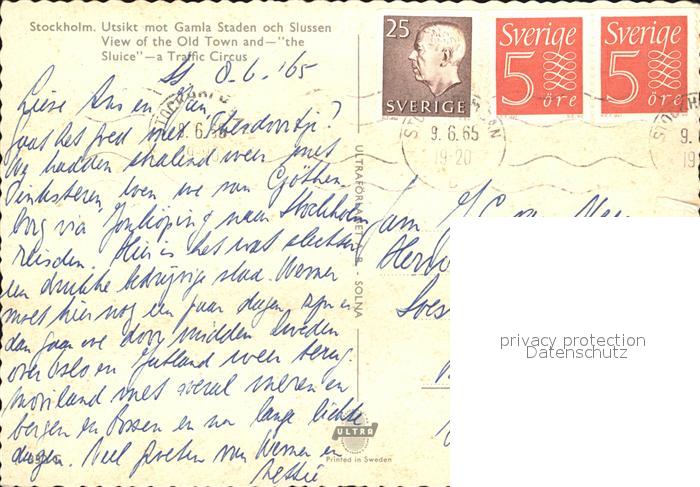 Stockholm. Utsikt mot Gamla Staden och Slussen
View of the Old Town and—"the
Sluice"—a Traffic Circus
8-6.'65
Lieve Ans en Jan,
Gaat het goed met
We hadden stralend weer met
Pinksteren toen we van Göthen-
borg via Jonköping naar Stockholm
reisden. Hier is het wat slechter
een drukke bedrijvige stad. Werner
moet hier nog een paar dagen zijn en
dan gaan we door midden Sweden
over Oslo en Jutland weer terug.
Mooi land met veel meren en
bergen en bossen en nu lange lichte
dagen. Veel groeten van Werner en
Nettie
ULTRAFÖRLAGET A.B. - SOLNA
ULTRA
Printed in Sweden
25
SVERIGE
Sverige
5
öre
Sverige
5
öre
STOCKHOLM
9.6.65
19-20
9.
19
Fam
privacy protection
Datenschutz